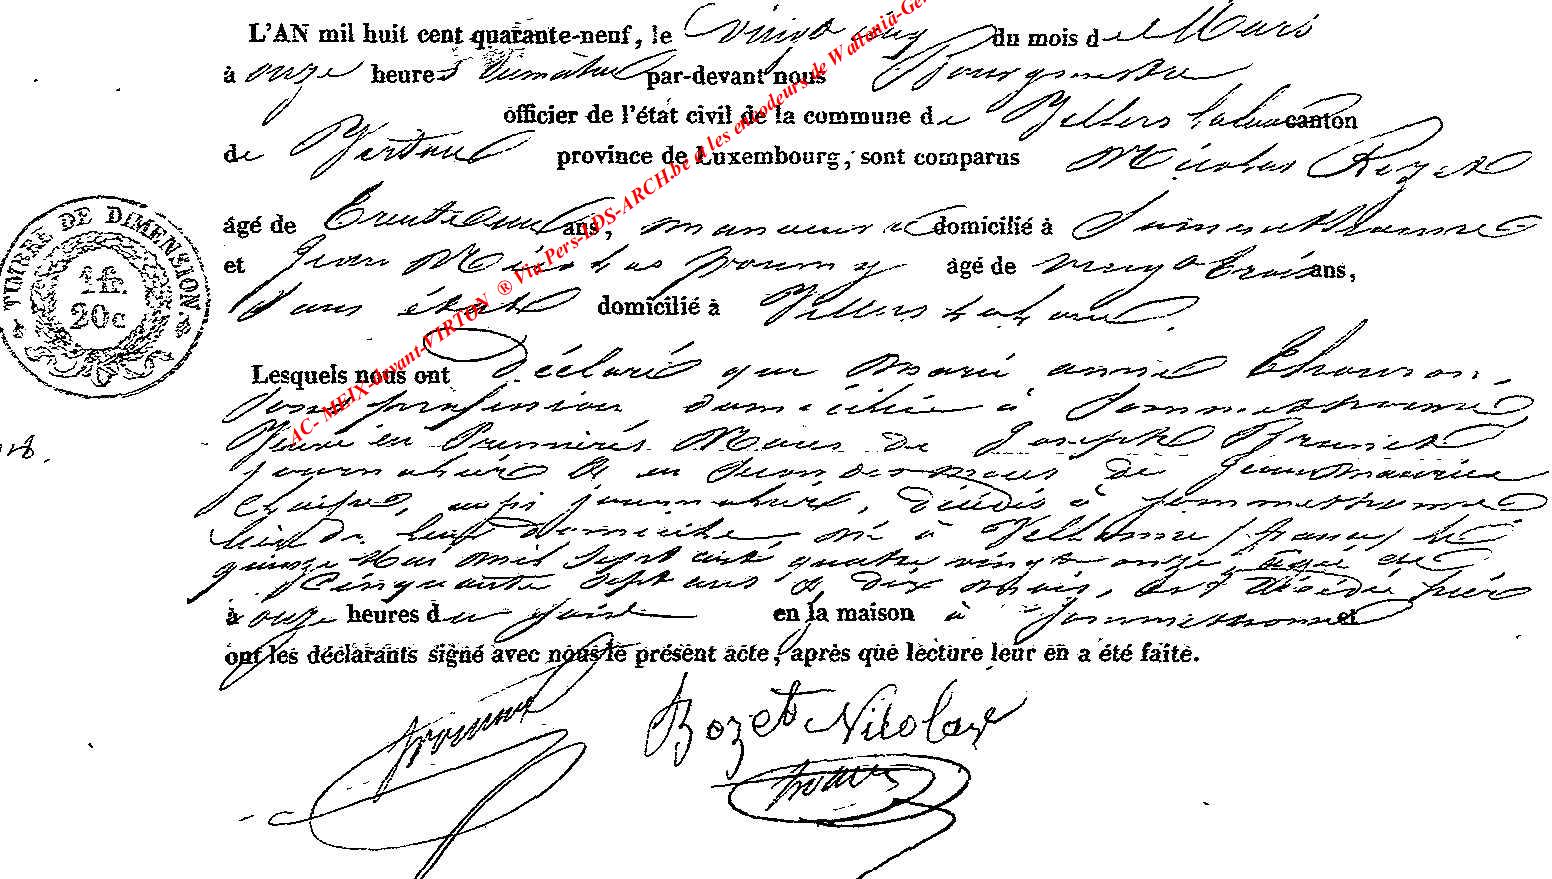 L'AN mil huit cent quarante-neuf, le vingt du mois de Mars
à onze heures du matin par-devant nous Bourgmestre
officier de l'état civil de la commune de Villers la loue canton
de Virton province de Luxembourg, sont comparus Nicolas Rozet
âgé de ans, manœuvre domicilié à Sommethonne
et Jean Nicolas âgé de vingt trois ans,
Sans état domicilié à Villers la loue
Lesquels nous ont déclaré que Marie anne Thomson,
Sans profession, domiciliée à Sommethonne
Veuve en Premières Noces de Joseph
journalier & en Secondes noces de Jean
aussi journalier, décédés à Sommethonne
lieu de leur domicile, née à Vellosne (france) le
quinze Mai mil Sept cent quatre vingt onze, âgée de
Cinquante Sept ans & dix mois, est décédée hier
à onze heures du soir en la maison à Sommethonne et
ont les déclarants signé avec nous le présent acte, après que lecture leur en a été faite.
Rozet Nicolas
TIMBRE DE DIMENSION.
1 fr.
20 c
AC- MEIX-devant-VIRTON ® Via Pers-LDS-ARCH.be et les encodeurs de Wallonia-Gen